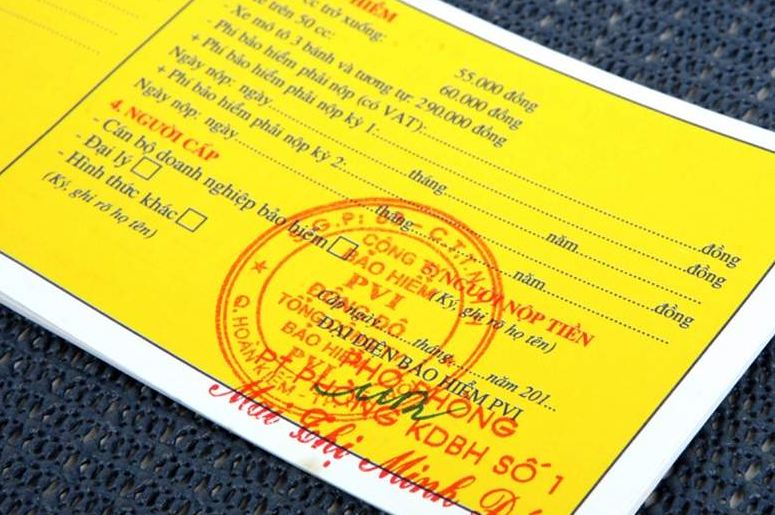 HIỂM
cc trở xuống: 55.000 đồng
trên 50 cc: 60.000 đồng
- Xe mô tô 3 bánh và tương tự: 290.000 đồng
- Phí bảo hiểm phải nộp (có VAT):................đồng
+ Phí bảo hiểm phải nộp kỳ 1:................đồng
Ngày nộp: ngày................tháng................năm................
+ Phí bảo hiểm phải nộp kỳ 2:................đồng
Ngày nộp: ngày................tháng................năm................
4. NGƯỜI CẤP
- Cán bộ doanh nghiệp bảo hiểm □
- Đại lý □
- Hình thức khác □
(Ký, ghi rõ họ tên)
NGƯỜI NỘP TIỀN
(Ký, ghi rõ họ tên)
Cấp ngày........tháng........năm 201...
ĐẠI DIỆN BẢO HIỂM PVI
CÔNG TY
BẢO HIỂM
PVI
ĐÔNG ĐÔ
TỔNG
BẢO HIỂM
PVI
Q.HOÀN KIẾM
PHÓ PHÒNG
PT PHÒNG KDBH SỐ 1
Mai Thị Minh